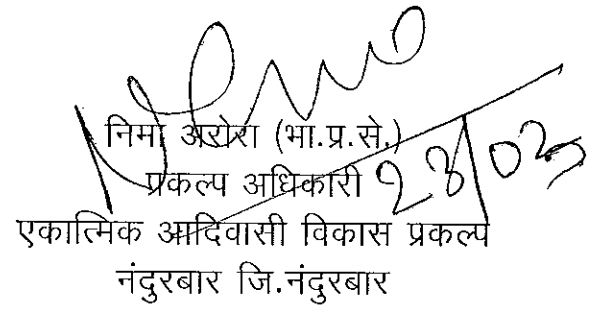 निमा अरोरा (भा.प्र.से.)
प्रकल्प अधिकारी
एकात्मिक आदिवासी विकास प्रकल्प
नंदुरबार जि.नंदुरबार